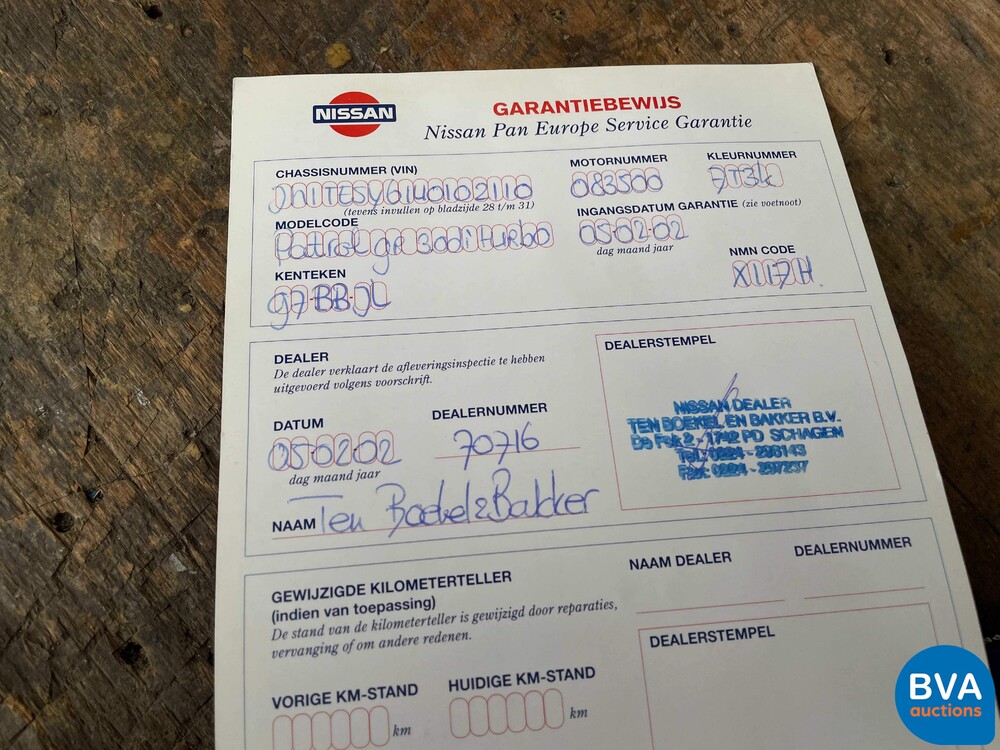 NISSAN
GARANTIEBEWIJS
Nissan Pan Europe Service Garantie
CHASSISNUMMER (VIN)
MOTORNUMMER
KLEURNUMMER
JN1TESY61U0102110
083500
(tevens invullen op bladzijde 28 t/m 31)
MODELCODE
INGANGSDATUM GARANTIE (zie voetnoot)
Patrol gr 3.0di turbo
05-02-02
dag maand jaar
KENTEKEN
NMN CODE
97-BB-JL
X117H
DEALER
De dealer verklaart de afleveringsinspectie te hebben
uitgevoerd volgens voorschrift.
DEALERSTEMPEL
DATUM
DEALERNUMMER
05-02-02
70716
dag maand jaar
NISSAN DEALER
TEN BOEKEL EN BAKKER B.V.
De Fok 2 - 1742 PD SCHAGEN
Tel. 0224 - 296143
Fax. 0224 - 297237
NAAM Ten Boekel & Bakker
GEWIJZIGDE KILOMETERTELLER
(indien van toepassing)
De stand van de kilometerteller is gewijzigd door reparaties,
vervanging of om andere redenen.
NAAM DEALER
DEALERNUMMER
DEALERSTEMPEL
VORIGE KM-STAND
HUIDIGE KM-STAND
km
km
BVA
auctions